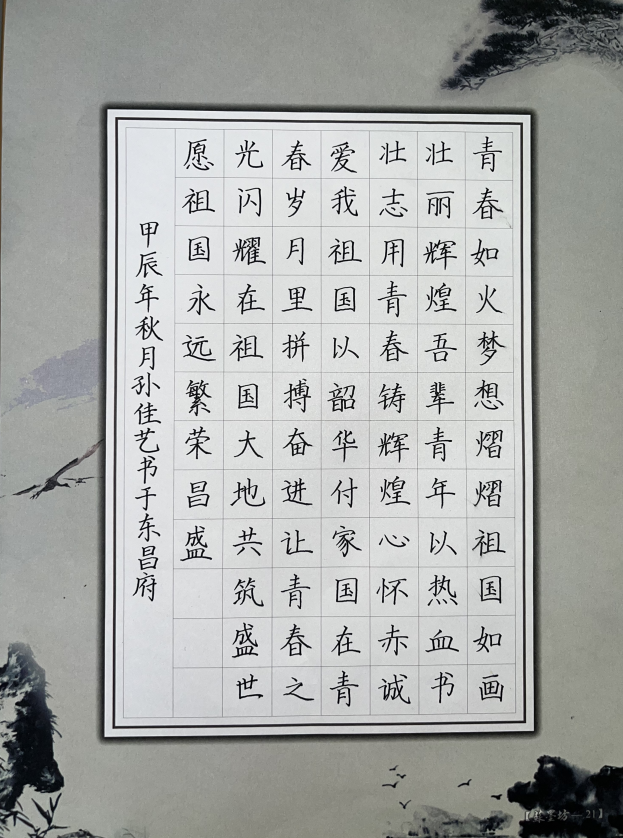 青春如火梦想熠熠祖国如画
壮丽辉煌吾辈青年以热血书
壮志用青春铸辉煌心怀赤诚
爱我祖国以韶华付家国在青
春岁月里拼搏奋进让青春之
光闪耀在祖国大地共筑盛世
愿祖国永远繁荣昌盛
甲辰年秋月孙佳艺书于东昌府
墨坊—21】